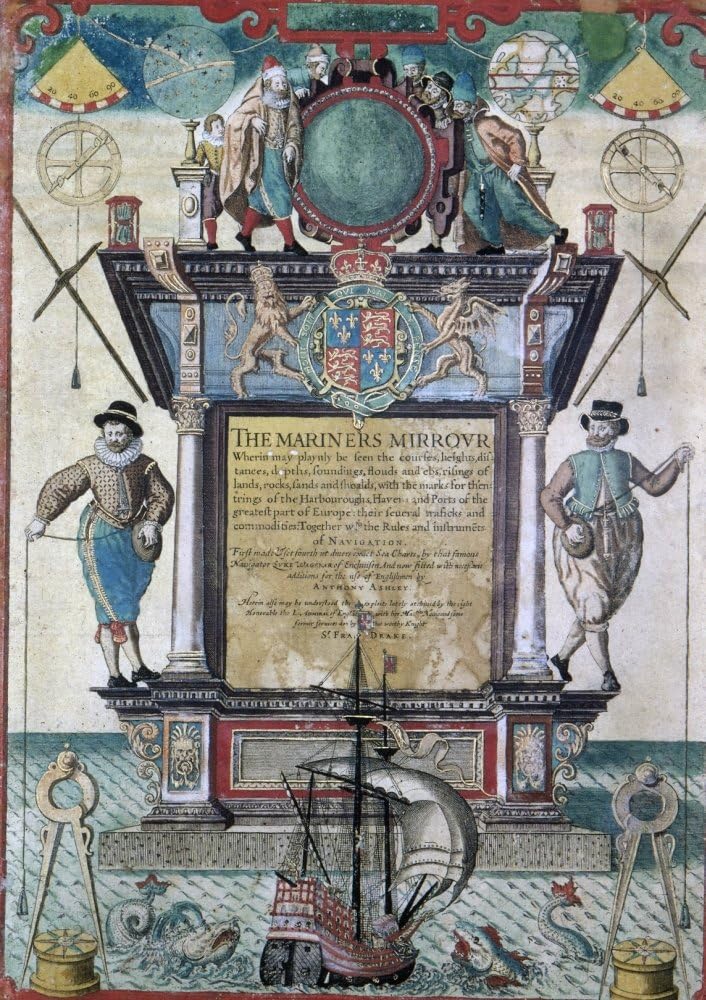 20 40 60 90
20 40 60 90
QVI MAL
THE MARINERS MIRROVR
Wherin may playnly be seen the courses, heights, dis-
tances, depths, soundings, flouds and ebs, risings of
lands, rocks, sands and shoalds, with the marks for thēn
trings of the Harbouroughs, Havens and Ports of the
greatest part of Europe: their seueral traficks and
commodities: Together wth. the Rules and instrumēts
of NAVIGATION.
First made & set fourth in divers exact Sea Charts, by that famous
Navigator LVKE WAGENAR of Enchuisen And now fitted with necessarie
additions for the use of Englishmen by
ANTHONY ASHLEY.
Herein also may be understood the exploits lately atchiued by the right
Honorable the L. Admiral of Eng with her Maties. Nauie and some
former seruices don by that worthy Knight
Sr. FRA DRAKE